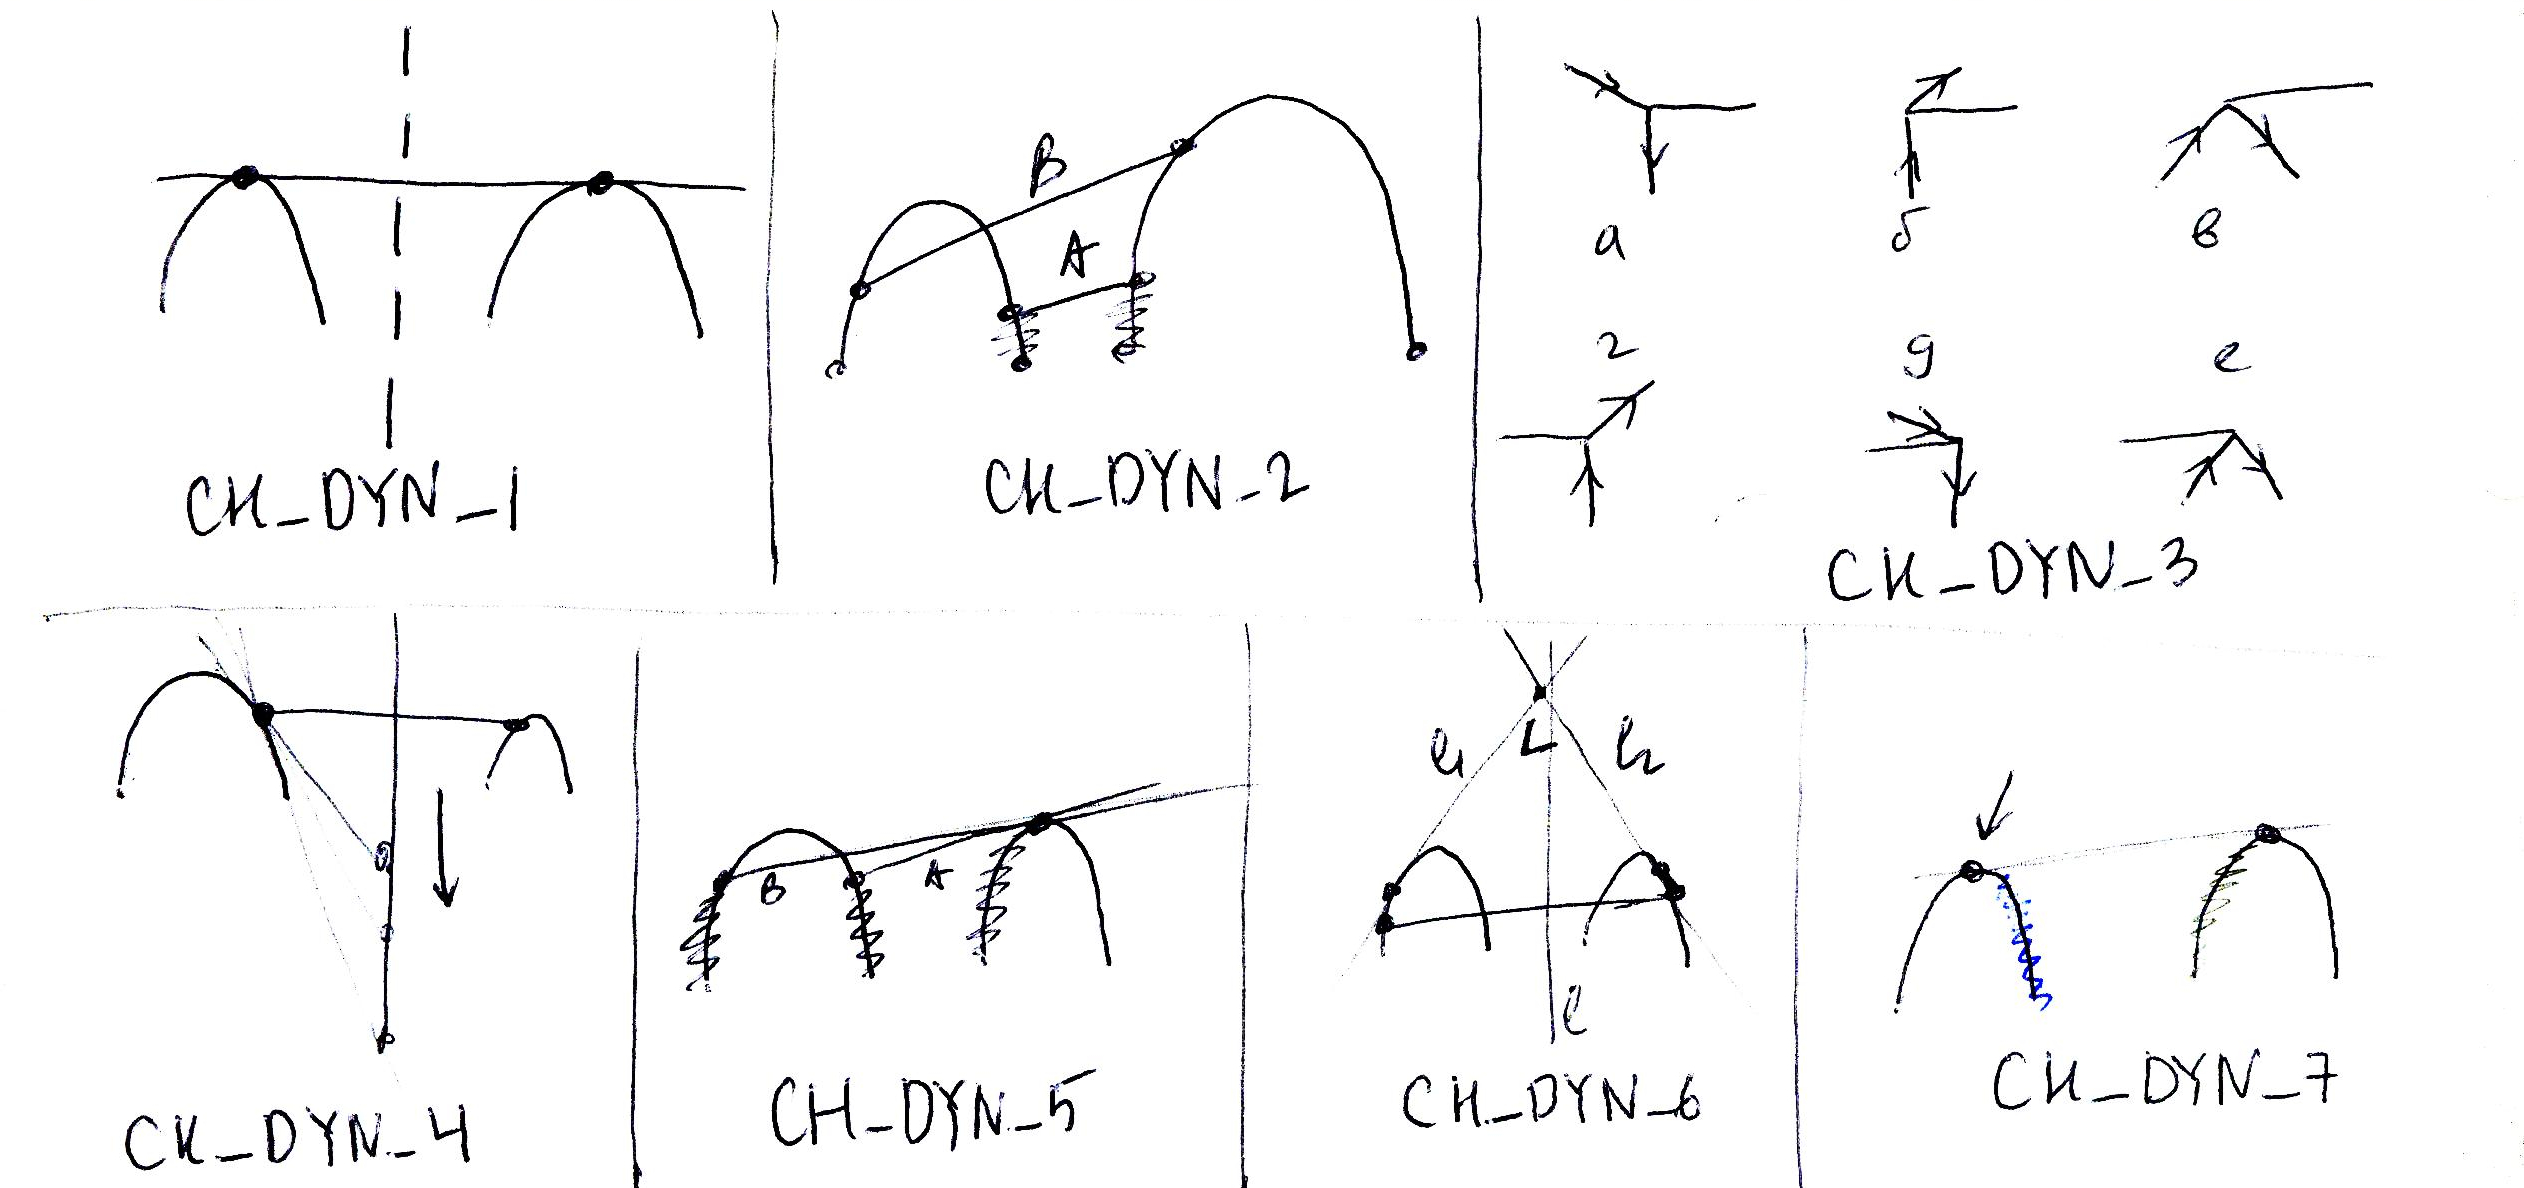 B
A
CH_DYN_1
CH_DYN_2
а
б
в
г
д
е
CH_DYN_3
CH_DYN_4
B
A
CH_DYN_5
l1
L
l2
l
CH_DYN_6
CH_DYN_7